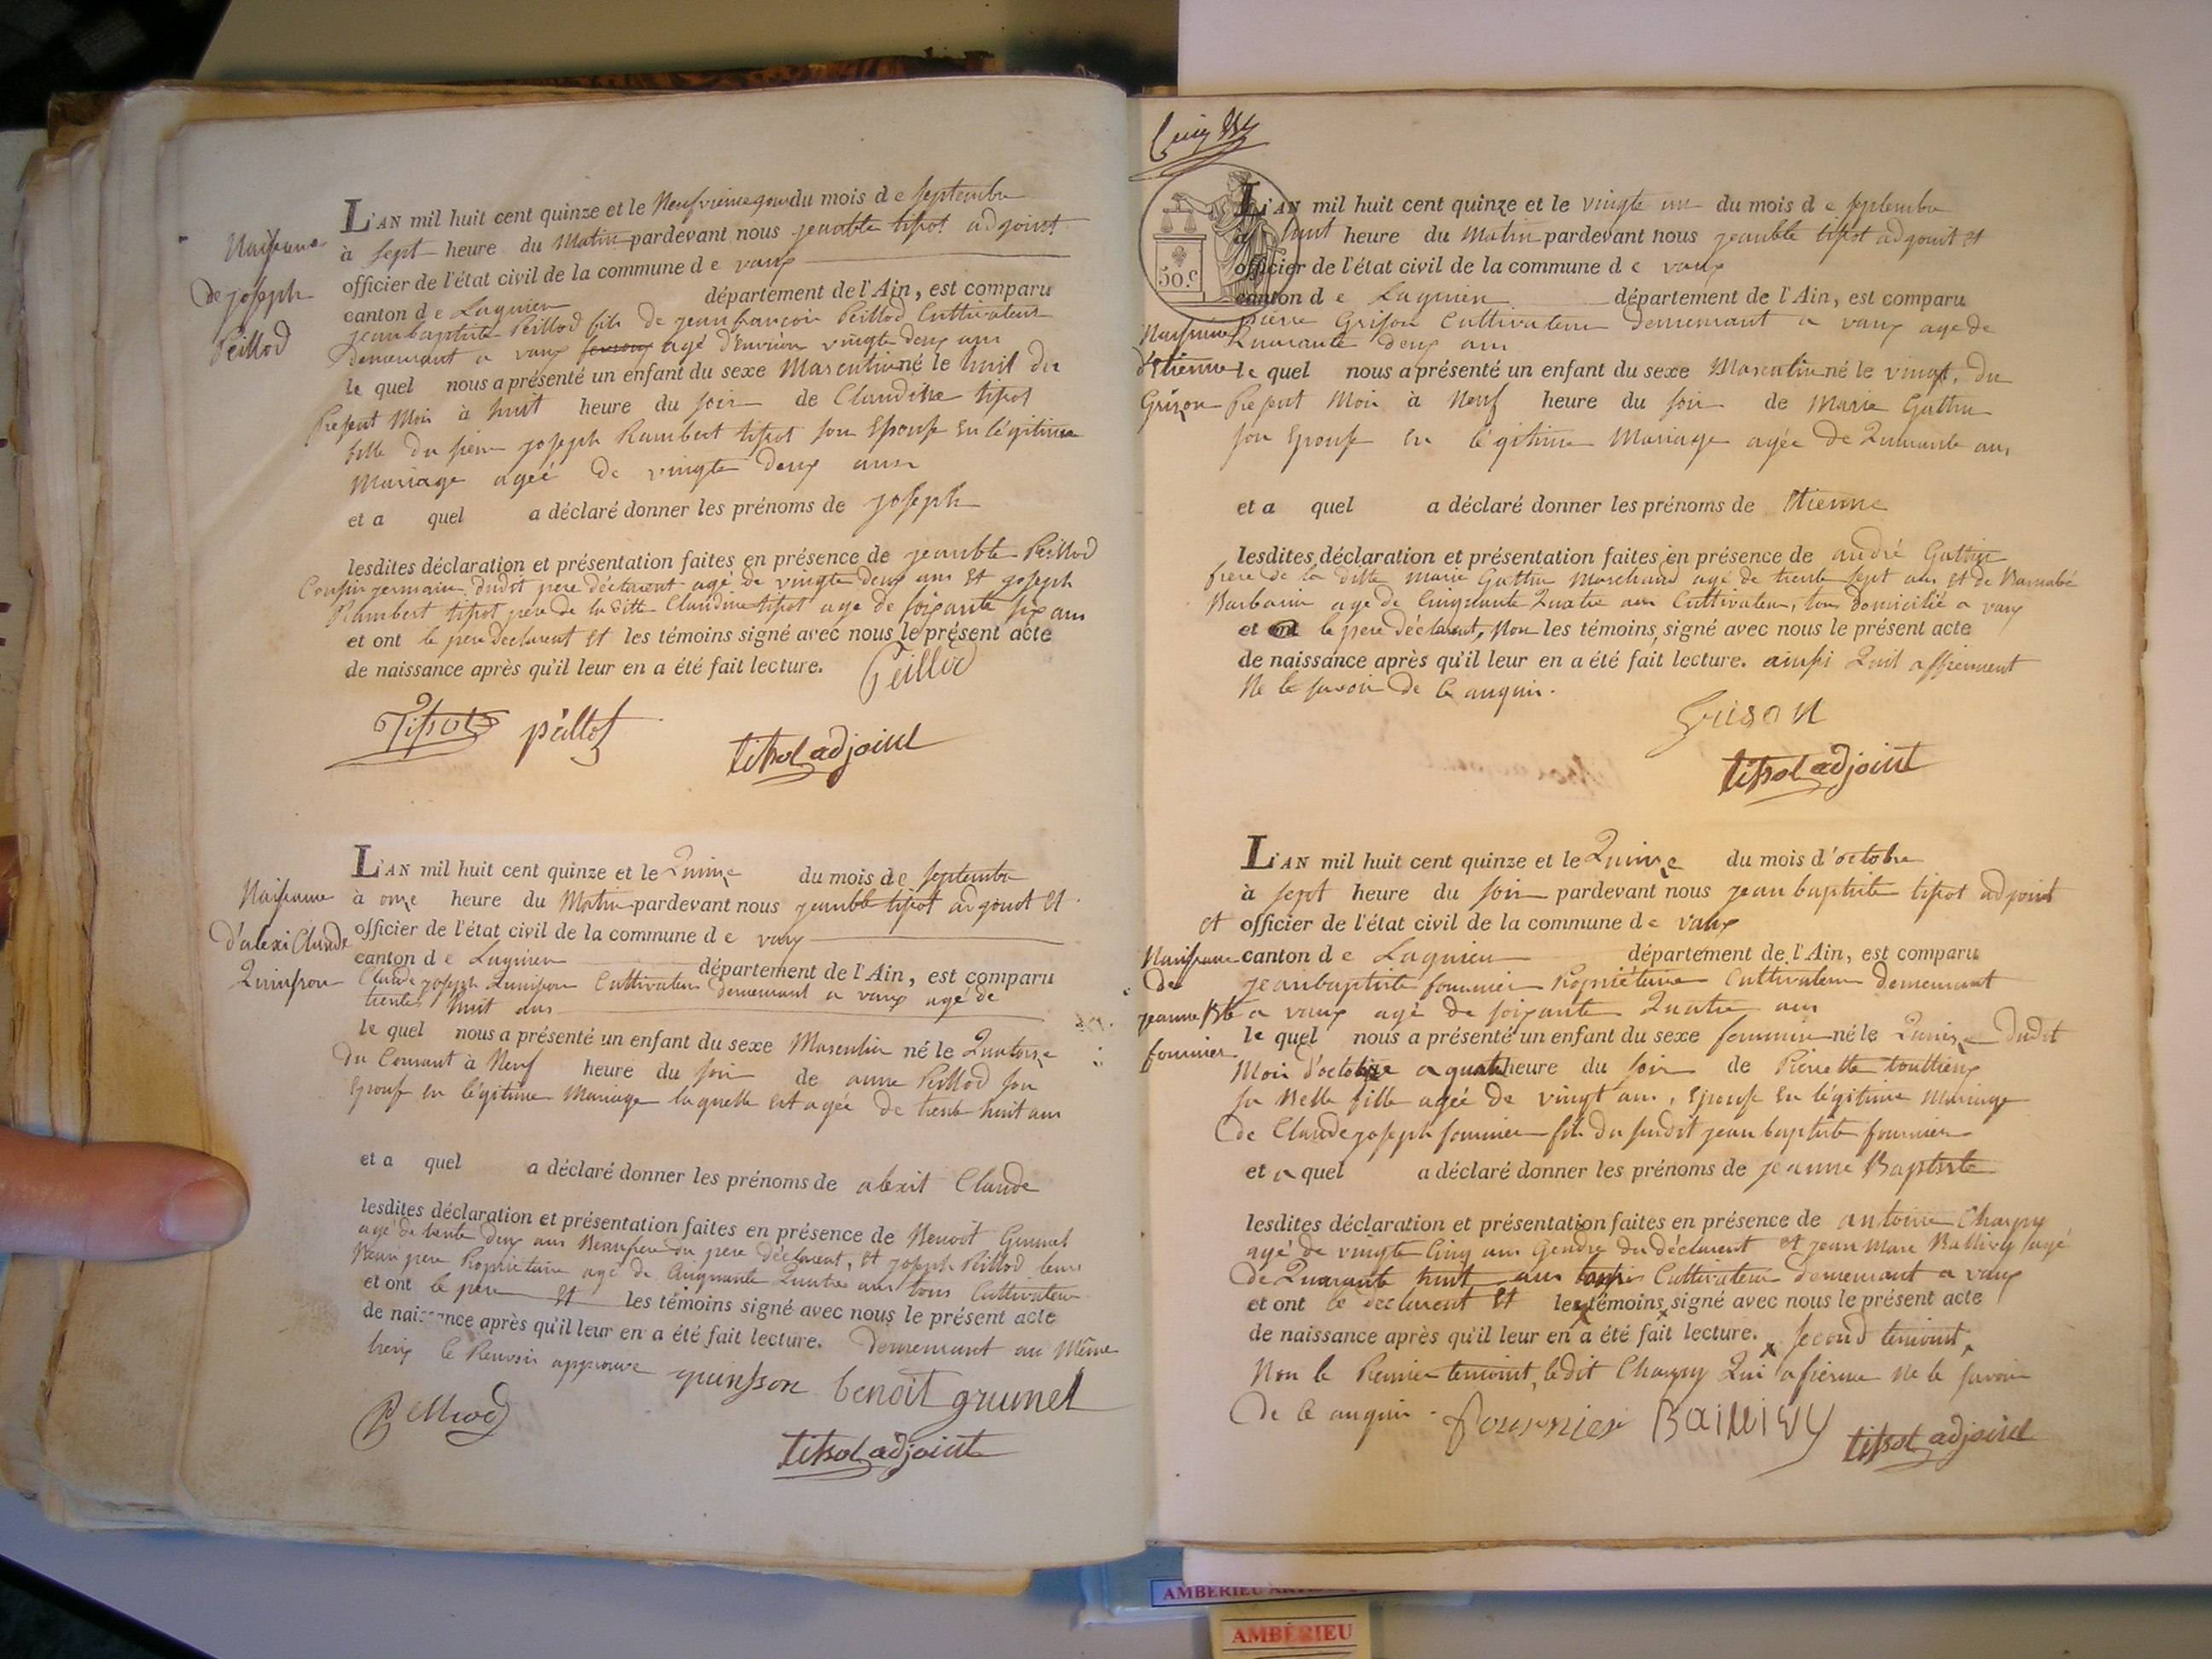 Naissance
de joseph
Peillod
L'AN mil huit cent quinze et le Neufvieme jour du mois de septembre
à sept heure du Matin pardevant nous jeanbte tissot adjoint
officier de l'état civil de la commune de vaux
canton de Lagnieu département de l'Ain, est comparu
jeanbaptiste Peillod fils de jeanfrançois Peillod Cultivateur
Demeurant a vaux agé d'Environ vingte deux ans
le quel nous a présenté un enfant du sexe Masculin né le huit du
present Mois à huit heure du soir de Claudine tissot
fille du sieur joseph Rambert tissot son Epouse en légitime
Mariage agée de vingte deux ans
et a quel a déclaré donner les prénoms de joseph
lesdites déclaration et présentation faites en présence de jeanbte Peillod
Cousin germain dudit pere déclarent agé de vingte deux ans Et joseph
Rambert tissot pere de la ditte Claudine tissot age de soixante six ans
et ont le pere Declarent Et les témoins signé avec nous le présent acte
de naissance après qu'il leur en a été fait lecture. Peillod
Tissot péillod tissot adjoint
Naissance
d'alexi Claude
Quinson
L'AN mil huit cent quinze et le Quinze du mois de septembre
à onze heure du Matin pardevant nous jeanbte tissot adjoint Et
officier de l'état civil de la commune de vaux
canton de Lagnieu département de l'Ain, est comparu
Claude joseph Quinson Cultivateur demeurant a vaux agé de
trente huit ans
le quel nous a présenté un enfant du sexe Masculin né le Quatorze
du Courant à Neuf heure du soir de anne Peillod son
Epouse en légitime Mariage laquelle est agée de trente huit ans
et a quel a déclaré donner les prénoms de alexit Claude
lesdites déclaration et présentation faites en présence de Benoit Grunel
agé de trente deux ans Beaufrere du pere déclarent, Et joseph Peillod leur
Beau pere Propriétaire agé de Cinquante Quatre ans tous Cultivateur
et ont le pere Et les témoins signé avec nous le présent acte
de naissance après qu'il leur en a été fait lecture. Demeurant au Même
lieux le Renvois approuvé quinson benoit grunel
Peillod
tissot adjoint
50.c
Naissance
d'Etienne
Grison
L'AN mil huit cent quinze et le vingte un du mois de septembre
a huit heure du Matin pardevant nous jeanbte tissot adjoint et
officier de l'état civil de la commune de vaux
canton de Lagnieu département de l'Ain, est comparu
Pierre Grison Cultivateur demeurant a vaux age de
Quarante deux ans
le quel nous a présenté un enfant du sexe Masculin né le vingt, du
present Mois à Neuf heure du soir de Marie Guttin
son Epouse en légitime Mariage agée de Quarante ans
et a quel a déclaré donner les prénoms de Etienne
lesdites déclaration et présentation faites en présence de andré Guttin
frere de la ditte marie Guttin Marchand agé de trente sept ans et de Barnabé
Barbarin age de Cinquante Quatre ans Cultivateur, tous domicilié a vaux
et ont le pere déclarent, Non les témoins, signé avec nous le présent acte
de naissance après qu'il leur en a été fait lecture. ainsi Quil affirement
Ne le savoir de ce anquis.
Grison
tissot adjoint
Naissance
de
jeanne Bte
fournier
L'AN mil huit cent quinze et le Quinze du mois d'octobre
à sept heure du soir pardevant nous jean baptiste tissot adjoint
et officier de l'état civil de la commune de vaux
canton de Lagnieu département de l'Ain, est comparu
jeanbaptiste fournier Propriétaire Cultivateur demeurant
a vaux agé de soixante Quatre ans
le quel nous a présenté un enfant du sexe feminin né le Quinze Dudit
Mois d'octobre a quatre heure du soir de Pierrette touttieux
sa Belle fille agée de vingt ans, Epouse en légitime Mariage
de Claude joseph fournier fils du susdit jean baptiste fournier
et a quel a déclaré donner les prénoms de jeanne Baptiste
lesdites déclaration et présentation faites en présence de antoine Charpy
agé de vingte Cinq ans Gendre du déclarent et jean Marc Ballivy agé
de Quarante huit ans Cultivateur demeurant a vaux
et ont le declarent Et les témoins signé avec nous le présent acte
de naissance après qu'il leur en a été fait lecture. second temoint
Non le Premier temoint, ledit Charpy Qui afierme Ne le savoir
de ce anquis. fournier BaiLLiVy tissot adjoint
AMBÉRIEU
AMBÉRIEU